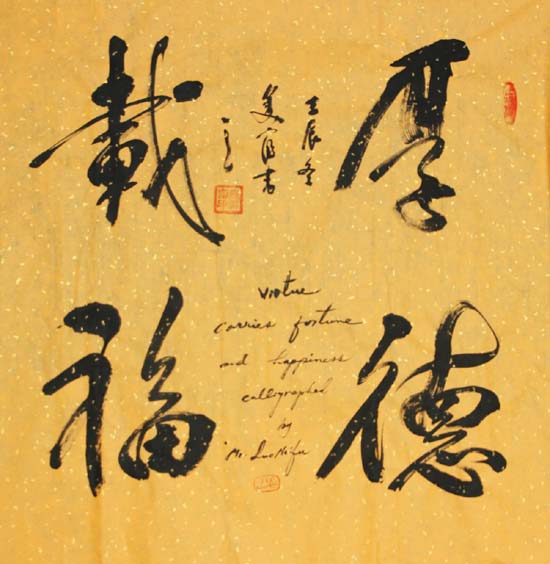 厚德
載福
壬辰冬
書
Virtue
carries fortune
and happiness
calligraphed
by
Mr. Luo